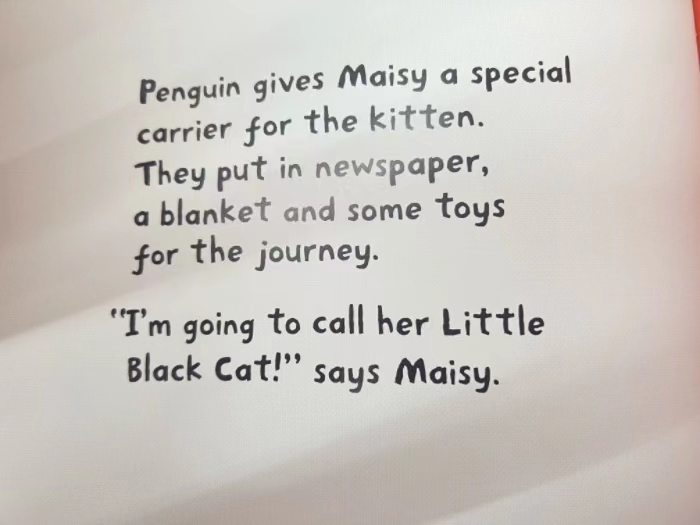 Penguin gives Maisy a special
carrier for the kitten.
They put in newspaper,
a blanket and some toys
for the journey.
"I'm going to call her Little
Black Cat!" says Maisy.